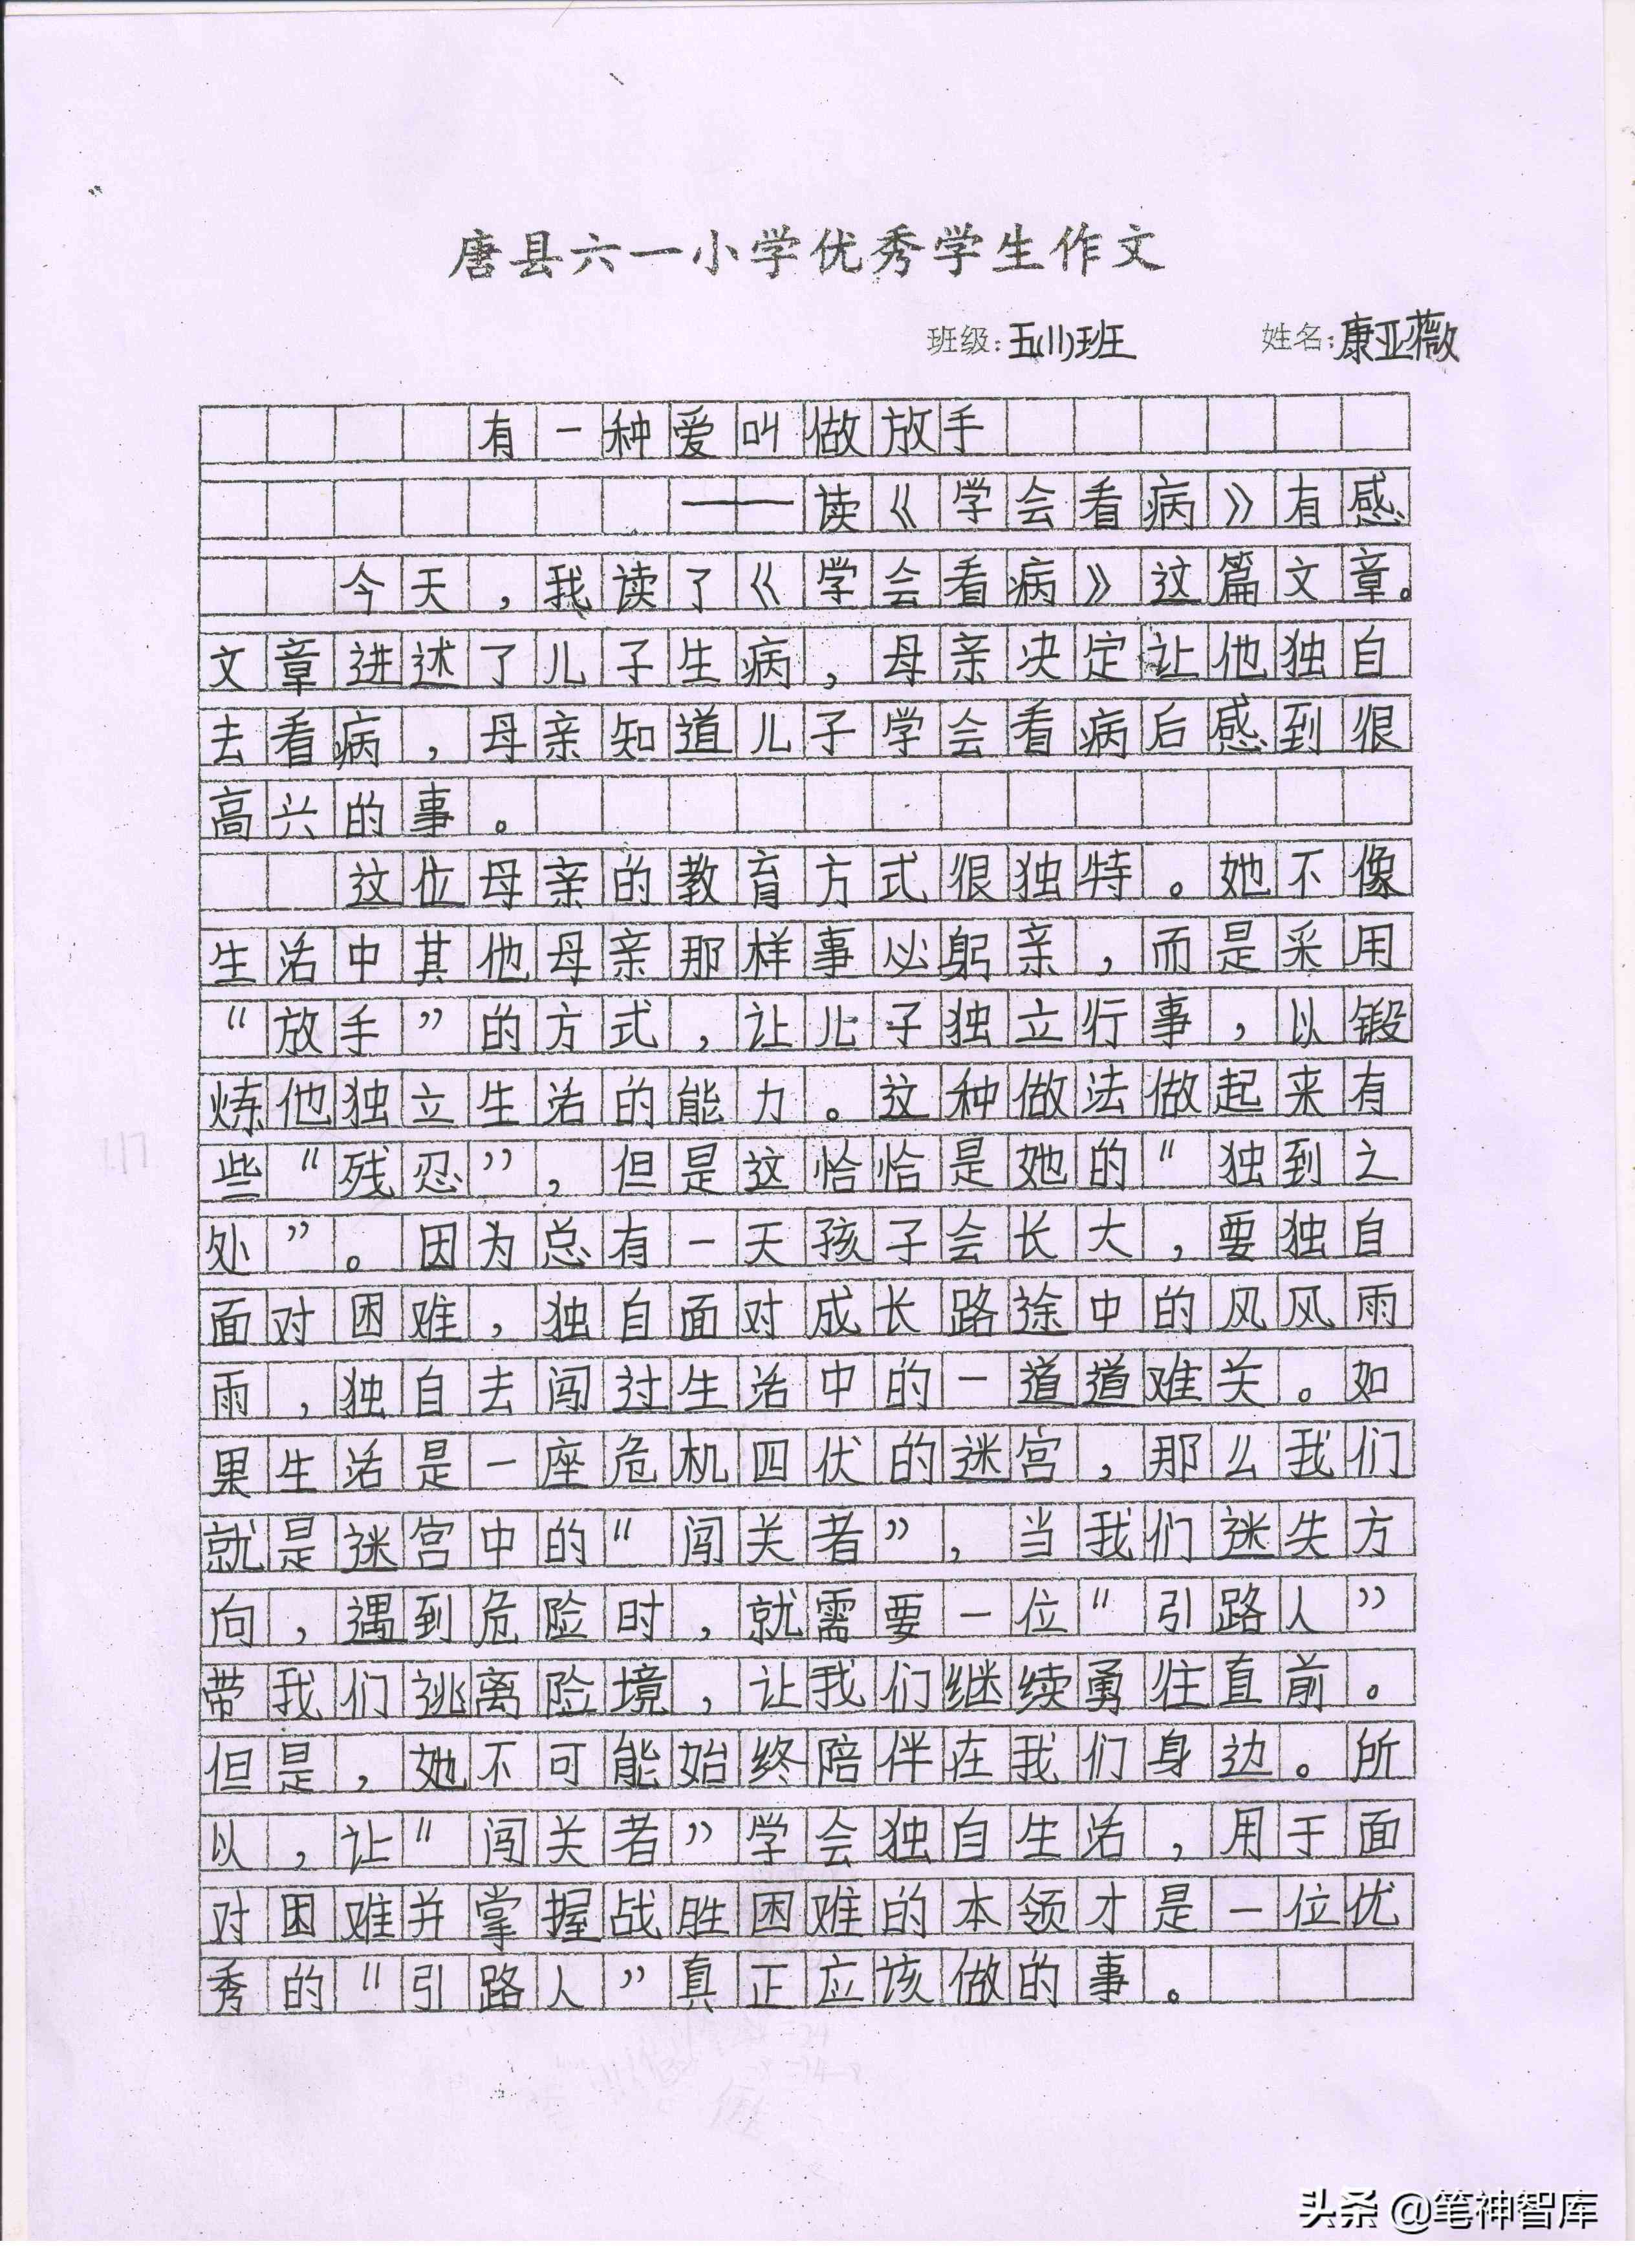 唐县六一小学优秀学生作文
班级：五(1)班 姓名：康亚薇
有一种爱叫做放手
——读《学会看病》有感
今天，我读了《学会看病》这篇文章。
文章进述了儿子生病，母亲决定让他独自
去看病，母亲知道儿子学会看病后感到很
高兴的事。
这位母亲的教育方式很独特。她不像
生活中其他母亲那样事必躬亲，而是采用
“放手”的方式，让儿子独立行事，以锻
炼他独立生活的能力。这种做法做起来有
些“残忍”，但是这恰恰是她的“独到之
处”。因为总有一天孩子会长大，要独自
面对困难，独自面对成长路途中的风风雨
雨，独自去闯过生活中的一道道难关。如
果生活是一座危机四伏的迷宫，那么我们
就是迷宫中的“闯关者”，当我们迷失方
向，遇到危险时，就需要一位“引路人”
带我们逃离险境，让我们继续勇往直前。
但是，她不可能始终陪伴在我们身边。所
以，让“闯关者”学会独自生活，用于面
对困难并掌握战胜困难的本领才是一位优
秀的“引路人”真正应该做的事。
头条 @笔神智库